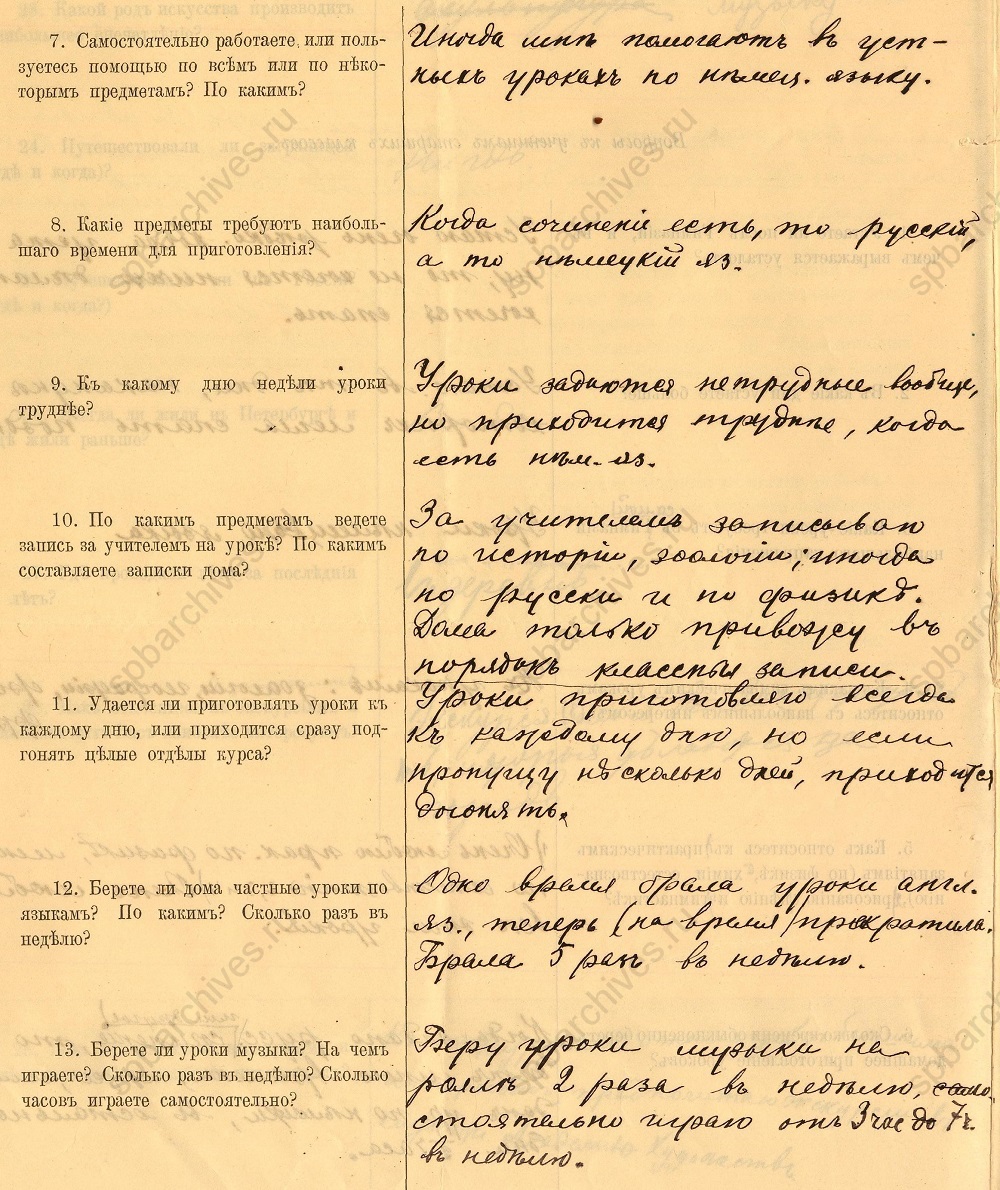 7. Самостоятельно работаете, или поль-
зуетесь помощью по всѣмъ или по нѣко-
торымъ предметамъ? По какимъ?
Иногда мнѣ помогаютъ въ уст-
ныхъ урокахъ по нѣмец. языку.
8. Какіе предметы требуютъ наиболь-
шаго времени для приготовленія?
Когда сочиненіе есть, то русскій,
а то нѣмецкій яз.
9. Къ какому дню недѣли уроки
труднѣе?
Уроки задаются нетрудные вообще,
но приходится труднѣе, когда
есть нѣм. яз.
10. По какимъ предметамъ ведете
запись за учителемъ на урокѣ? По какимъ
составляете записки дома?
За учителемъ записываю
по исторіи, зоологіи; иногда
по русски и по физикѣ.
Дома только привожу въ
порядокъ классныя записи.
11. Удается ли приготовлять уроки къ
каждому дню, или приходится сразу под-
гонять цѣлые отдѣлы курса?
Уроки приготовляю всегда
къ каждому дню, но если
пропущу нѣсколько дней, приходится
догонять.
12. Берете ли дома частные уроки по
языкамъ? По какимъ? Сколько разъ въ
недѣлю?
Одно время брала уроки англ.
яз., теперь (на время) прекратила.
Брала 5 разъ въ недѣлю.
13. Берете ли уроки музыки? На чемъ
играете? Сколько разъ въ недѣлю? Сколько
часовъ играете самостоятельно?
Беру уроки музыки на
роялѣ 2 раза въ недѣлю, само-
стоятельно играю отъ 3 час до 7 ч.
въ недѣлю.
spbarchives.ru